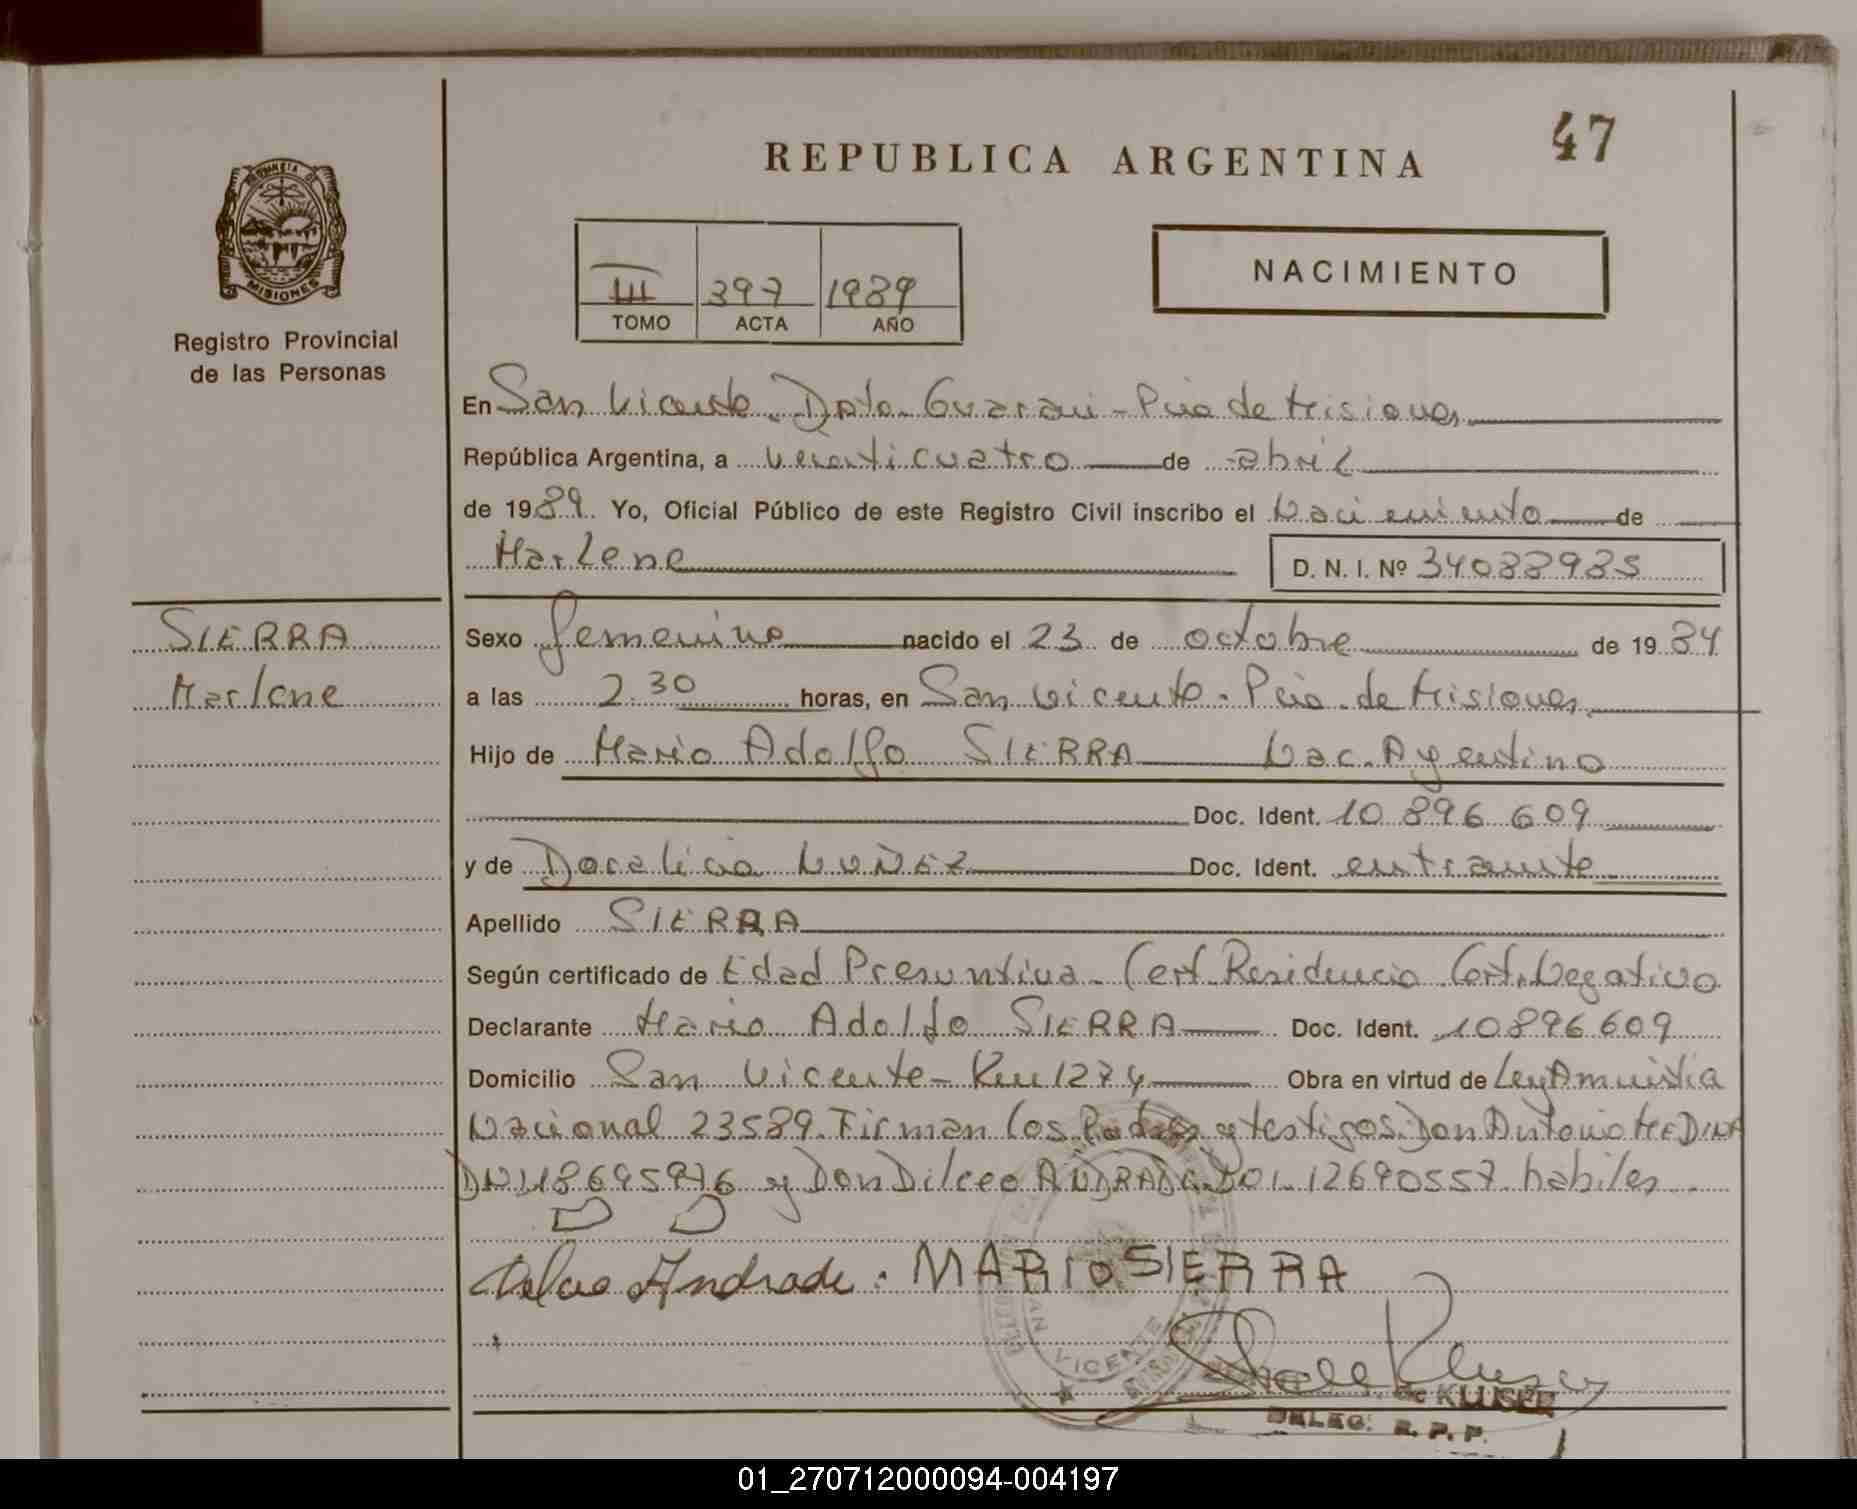 47
REPUBLICA ARGENTINA
PROVINCIA DE
MISIONES
Registro Provincial
de las Personas
III 397 1989
TOMO ACTA AÑO
NACIMIENTO
En San Vicente - Dpto. Guarani - Pcia de Misiones
República Argentina, a veinticuatro de abril
de 1989. Yo, Oficial Público de este Registro Civil inscribo el Nacimiento de
Marlene D. N. I. Nº 34088985
SIERRA
Marlene
Sexo femenino nacido el 23 de octubre de 1984
a las 2.30 horas, en San Vicente - Pcia. de Misiones
Hijo de Mario Adolfo SIERRA Nac. Argentino
Doc. Ident. 10 896 609
y de Doralicia NUÑEZ Doc. Ident. en tramite
Apellido SIERRA
Según certificado de Edad Presuntiva - Cert. Residencia Cert. Negativo
Declarante Mario Adolfo SIERRA Doc. Ident. 10896609
Domicilio San Vicente - Km 1274 Obra en virtud de Ley Amnistia
Nacional 23589. Firman los Padres y testigos: Don Antonio MEDINA
DNI 18695976 y Don Dilceo ANDRADE DNI 12690557 habiles
Andrade. MARIO SIERRA
SAN VICENTE
DE KLUSER
DELEG. R. P. P.
01_270712000094-004197